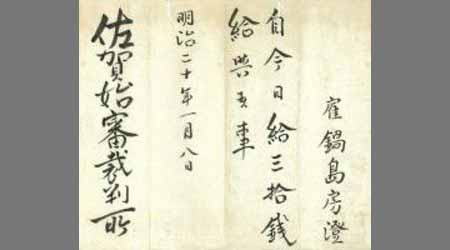 雇鍋島房澄
自今日給三拾錢
給與支事
明治二十年一月八日
佐賀始審裁判所